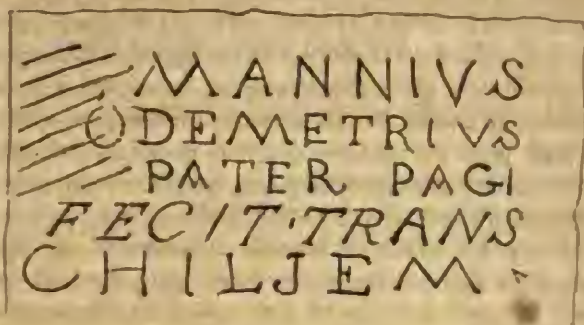 MANNIVS
O DEMETRIVS
PATER PAGI
FECIT·TRANS
CHILJEM